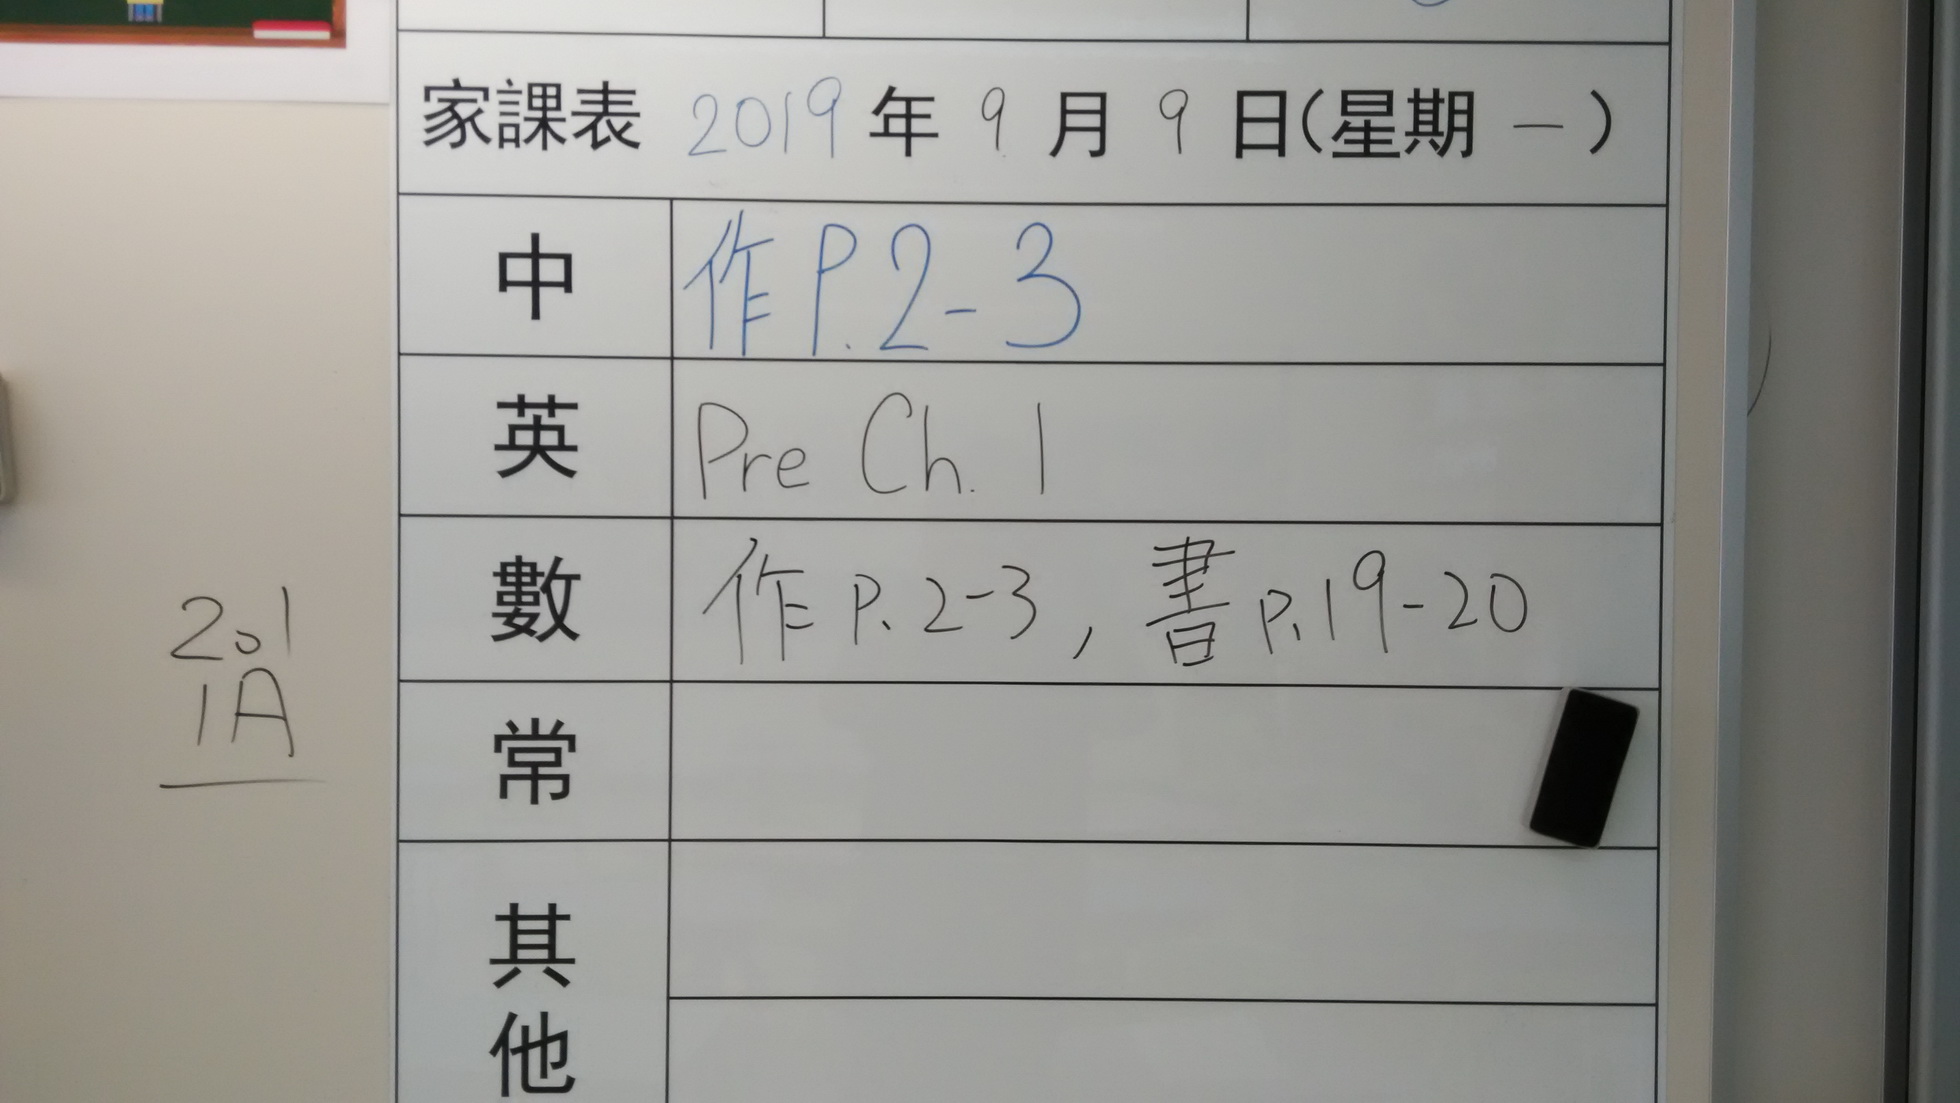 家課表 2019 年 9 月 9 日(星期 一 )
中 作 P.2-3
英 Pre Ch. 1
數 作 P.2-3, 書 P.19-20
常
其他
201
1A